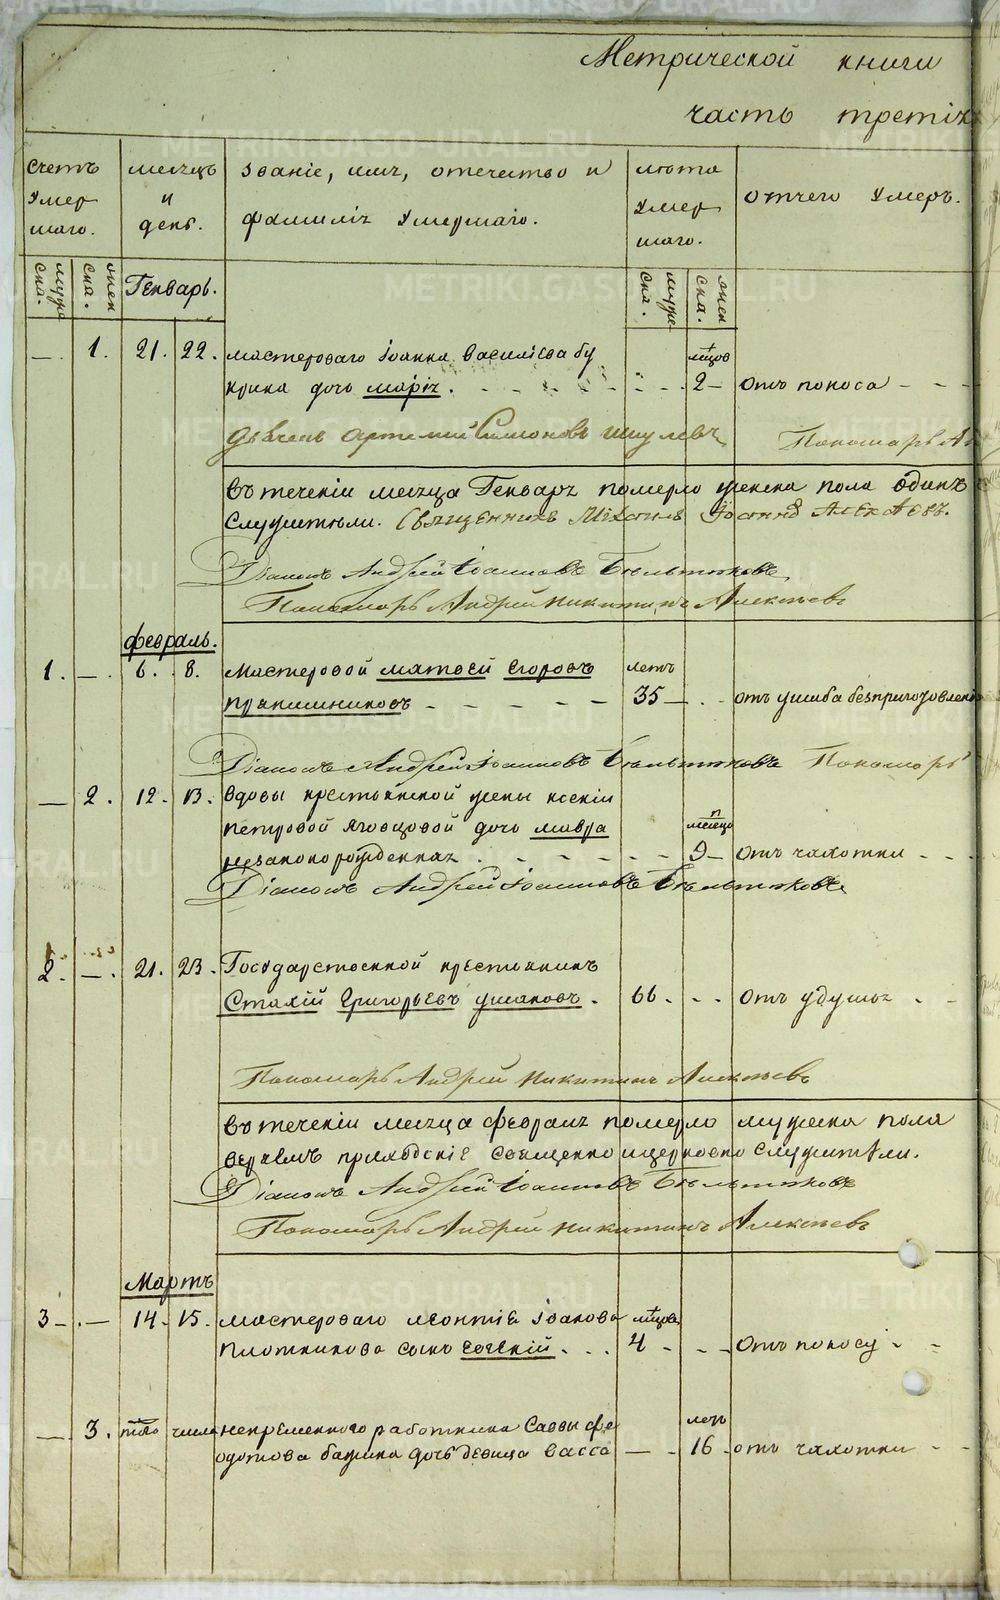 Метрической книги
часть третія
счетъ умер шаго.
месяцъ и день.
званіе, имя, отечество и фамилія умершаго.
лѣта умер шаго.
отчего умеръ.
муже ска.
женска.
Генварь.
муже ска.
женска.
— 1. 21. 22. мастероваго Іоанна Василіева Бу
мѣсяцов
крина дочь Марія. 2 — отъ поноса
Дьячекъ Артемій Симоновъ Пономарь А
въ теченіи месяца Генваря померло женска пола одинъ
служители. Священникъ Михаилъ Іоанновъ
Діаконъ Андрей Іоанновъ
Пономарь Андрей Никитинъ Алексѣевъ
февраль.
1. — 6. 8. Мастеровой Матвей Егоровъ летъ
35 — отъ ушиба безприготовлені
Діаконъ Андрей Іоанновъ Пономарь
— 2. 12. 13. Вдовы крестьянской жены Ксеніи
Петровой дочь Мавра месяцо
незаконорожденная 9 — отъ чахотки
Діаконъ Андрей Іоанновъ
2. — 21. 23. Государственной крестьянинъ
Стахій Григорьевъ Ушаковъ. 66. отъ удушья
Пономарь Андрей Никитинъ Алексѣевъ
въ теченіи месяца февраля померло мужска пола
священно и церковно служители.
Діаконъ Андрей Іоанновъ
Пономарь Андрей Никитинъ Алексѣевъ
Мартъ
3 — — 14. 15. мастероваго Леонтіе Іванова мѣсяцовъ
Плотникова сынъ Евгеній 4 — отъ поносу
— 3. того числа непременного работника Саввы Фе летъ
одотова дочь девица Васса — 16 отъ чахотки
METRIKI.GASO-URAL.RU